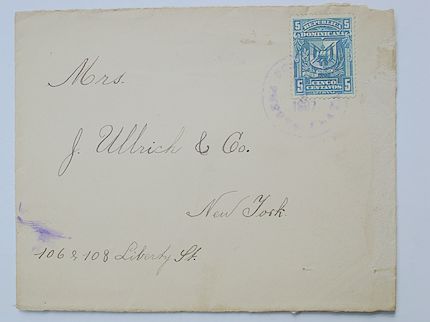 5 5
REPUBLICA
DOMINICANA
5 CINCO 5
CENTAVOS
Mrs.
J. Ullrich & Co.
New York
106 & 108 Liberty St.